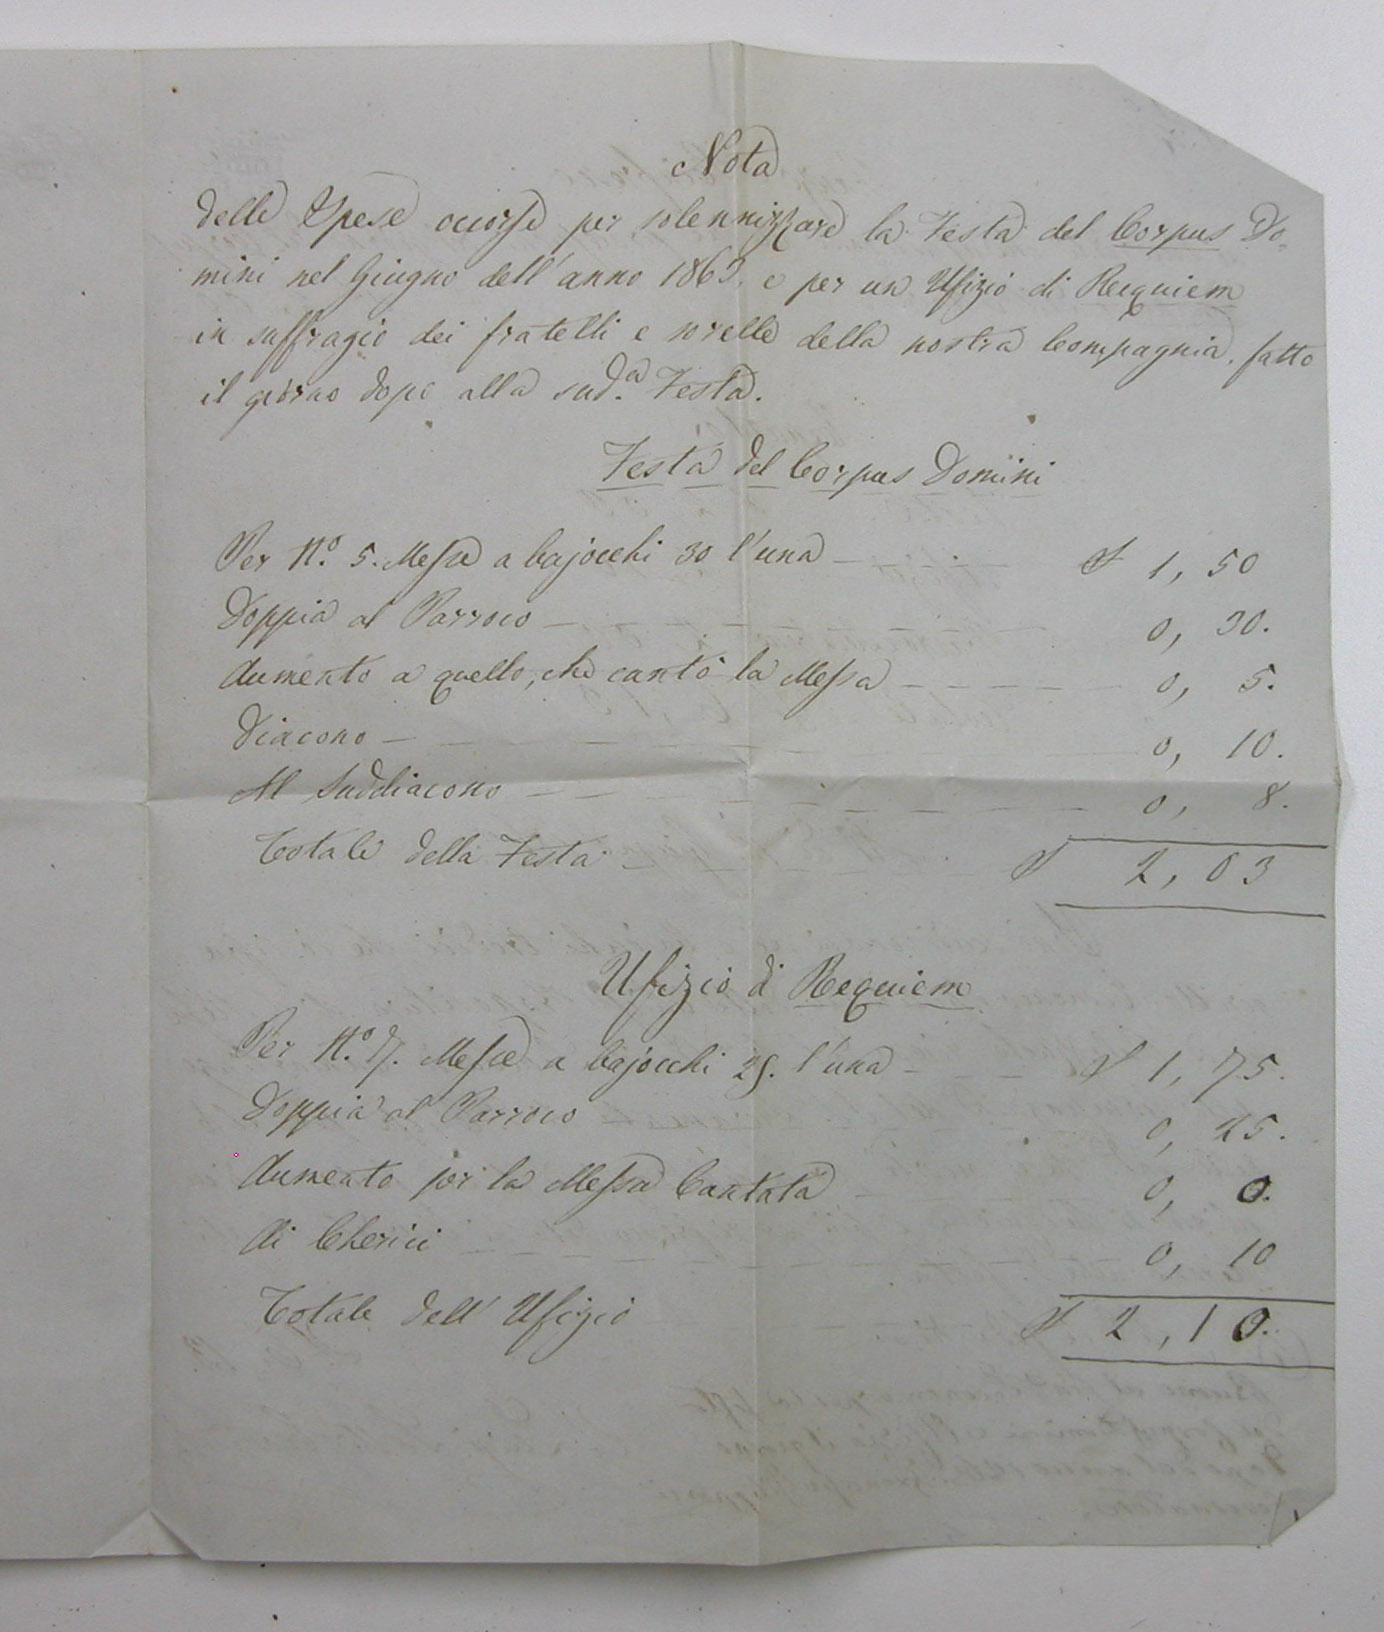 Nota
delle Spese occorse per solennizzare la Festa del Corpus Do-
mini nel Giugno dell'anno e per un Ufizio di Requiem
in suffragio dei fratelli e sorelle della nostra Compagnia, fatto
il giorno dopo alla sud.a Festa.
Festa del Corpus Domini
Per N.o 5. Messe a bajocchi 30 l'una — 1, 50
Doppia al Parroco — 0, 30.
Aumento a quello, che cantò la Messa — 0, 5.
Diacono — 0, 10.
Al Suddiacono — 0, 8.
Totale della Festa — 2, 03
Ufizio di Requiem
Per N.o 7. Messe a bajocchi 25. l'una — 1, 75.
Doppia al Parroco 0, 25.
Aumento per la Messa Cantata 0, 0.
Ai Cherici 0, 10
Totale dell' Ufizio 2, 10.